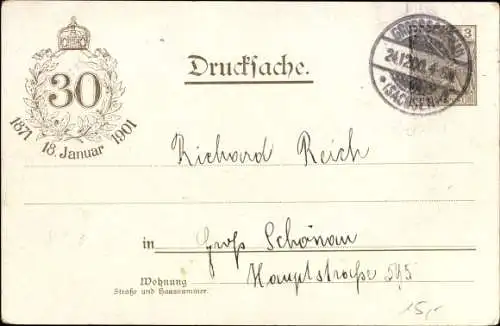 30
1871 18. Januar 1901
Drucksache.
GROSSSCHÖNAU
(SACHSEN)
3
Richard Reich
in Groß Schönau
Wohnung Hauptstraße 595
Straße und Hausnummer.
15,-